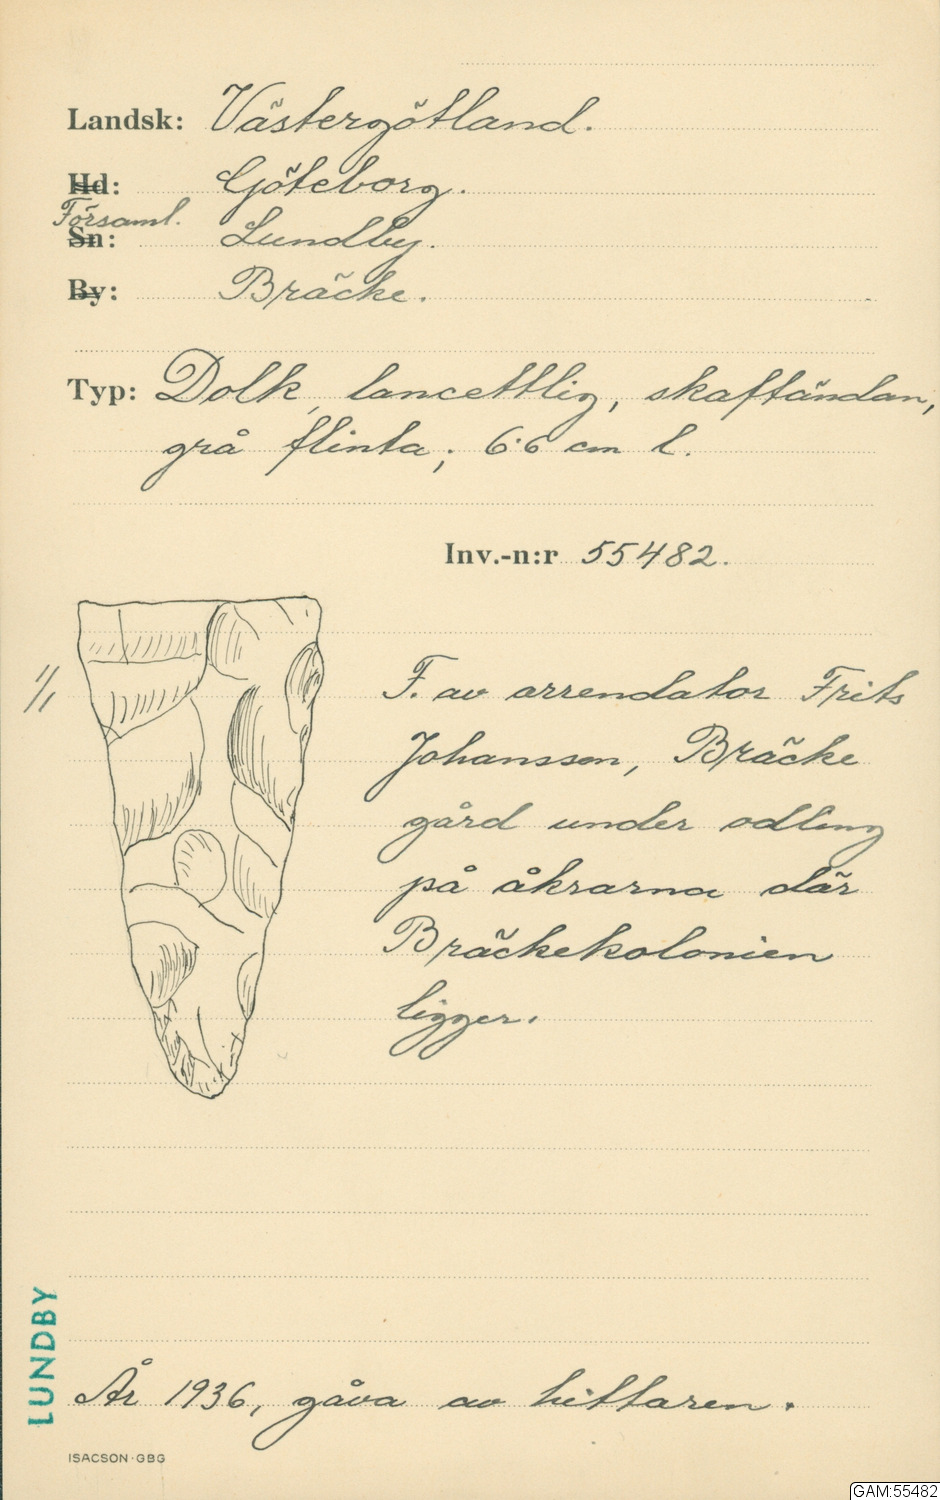 Landsk: Västergötland.
Hd: Göteborg.
Församl.
Sn: Lundby.
By: Bräcke.
Typ: Dolk, lancettlig, skaftändan,
grå flinta; 6.6 cm l.
Inv.-n:r 55482.
1/1
F. av arrendator Frits
Johansson, Bräcke
gård under odling
på åkrarna där
Bräckekolonien
ligger.
LUNDBY
År 1936, gåva av hittaren.
ISACSON·GBG
GAM:55482